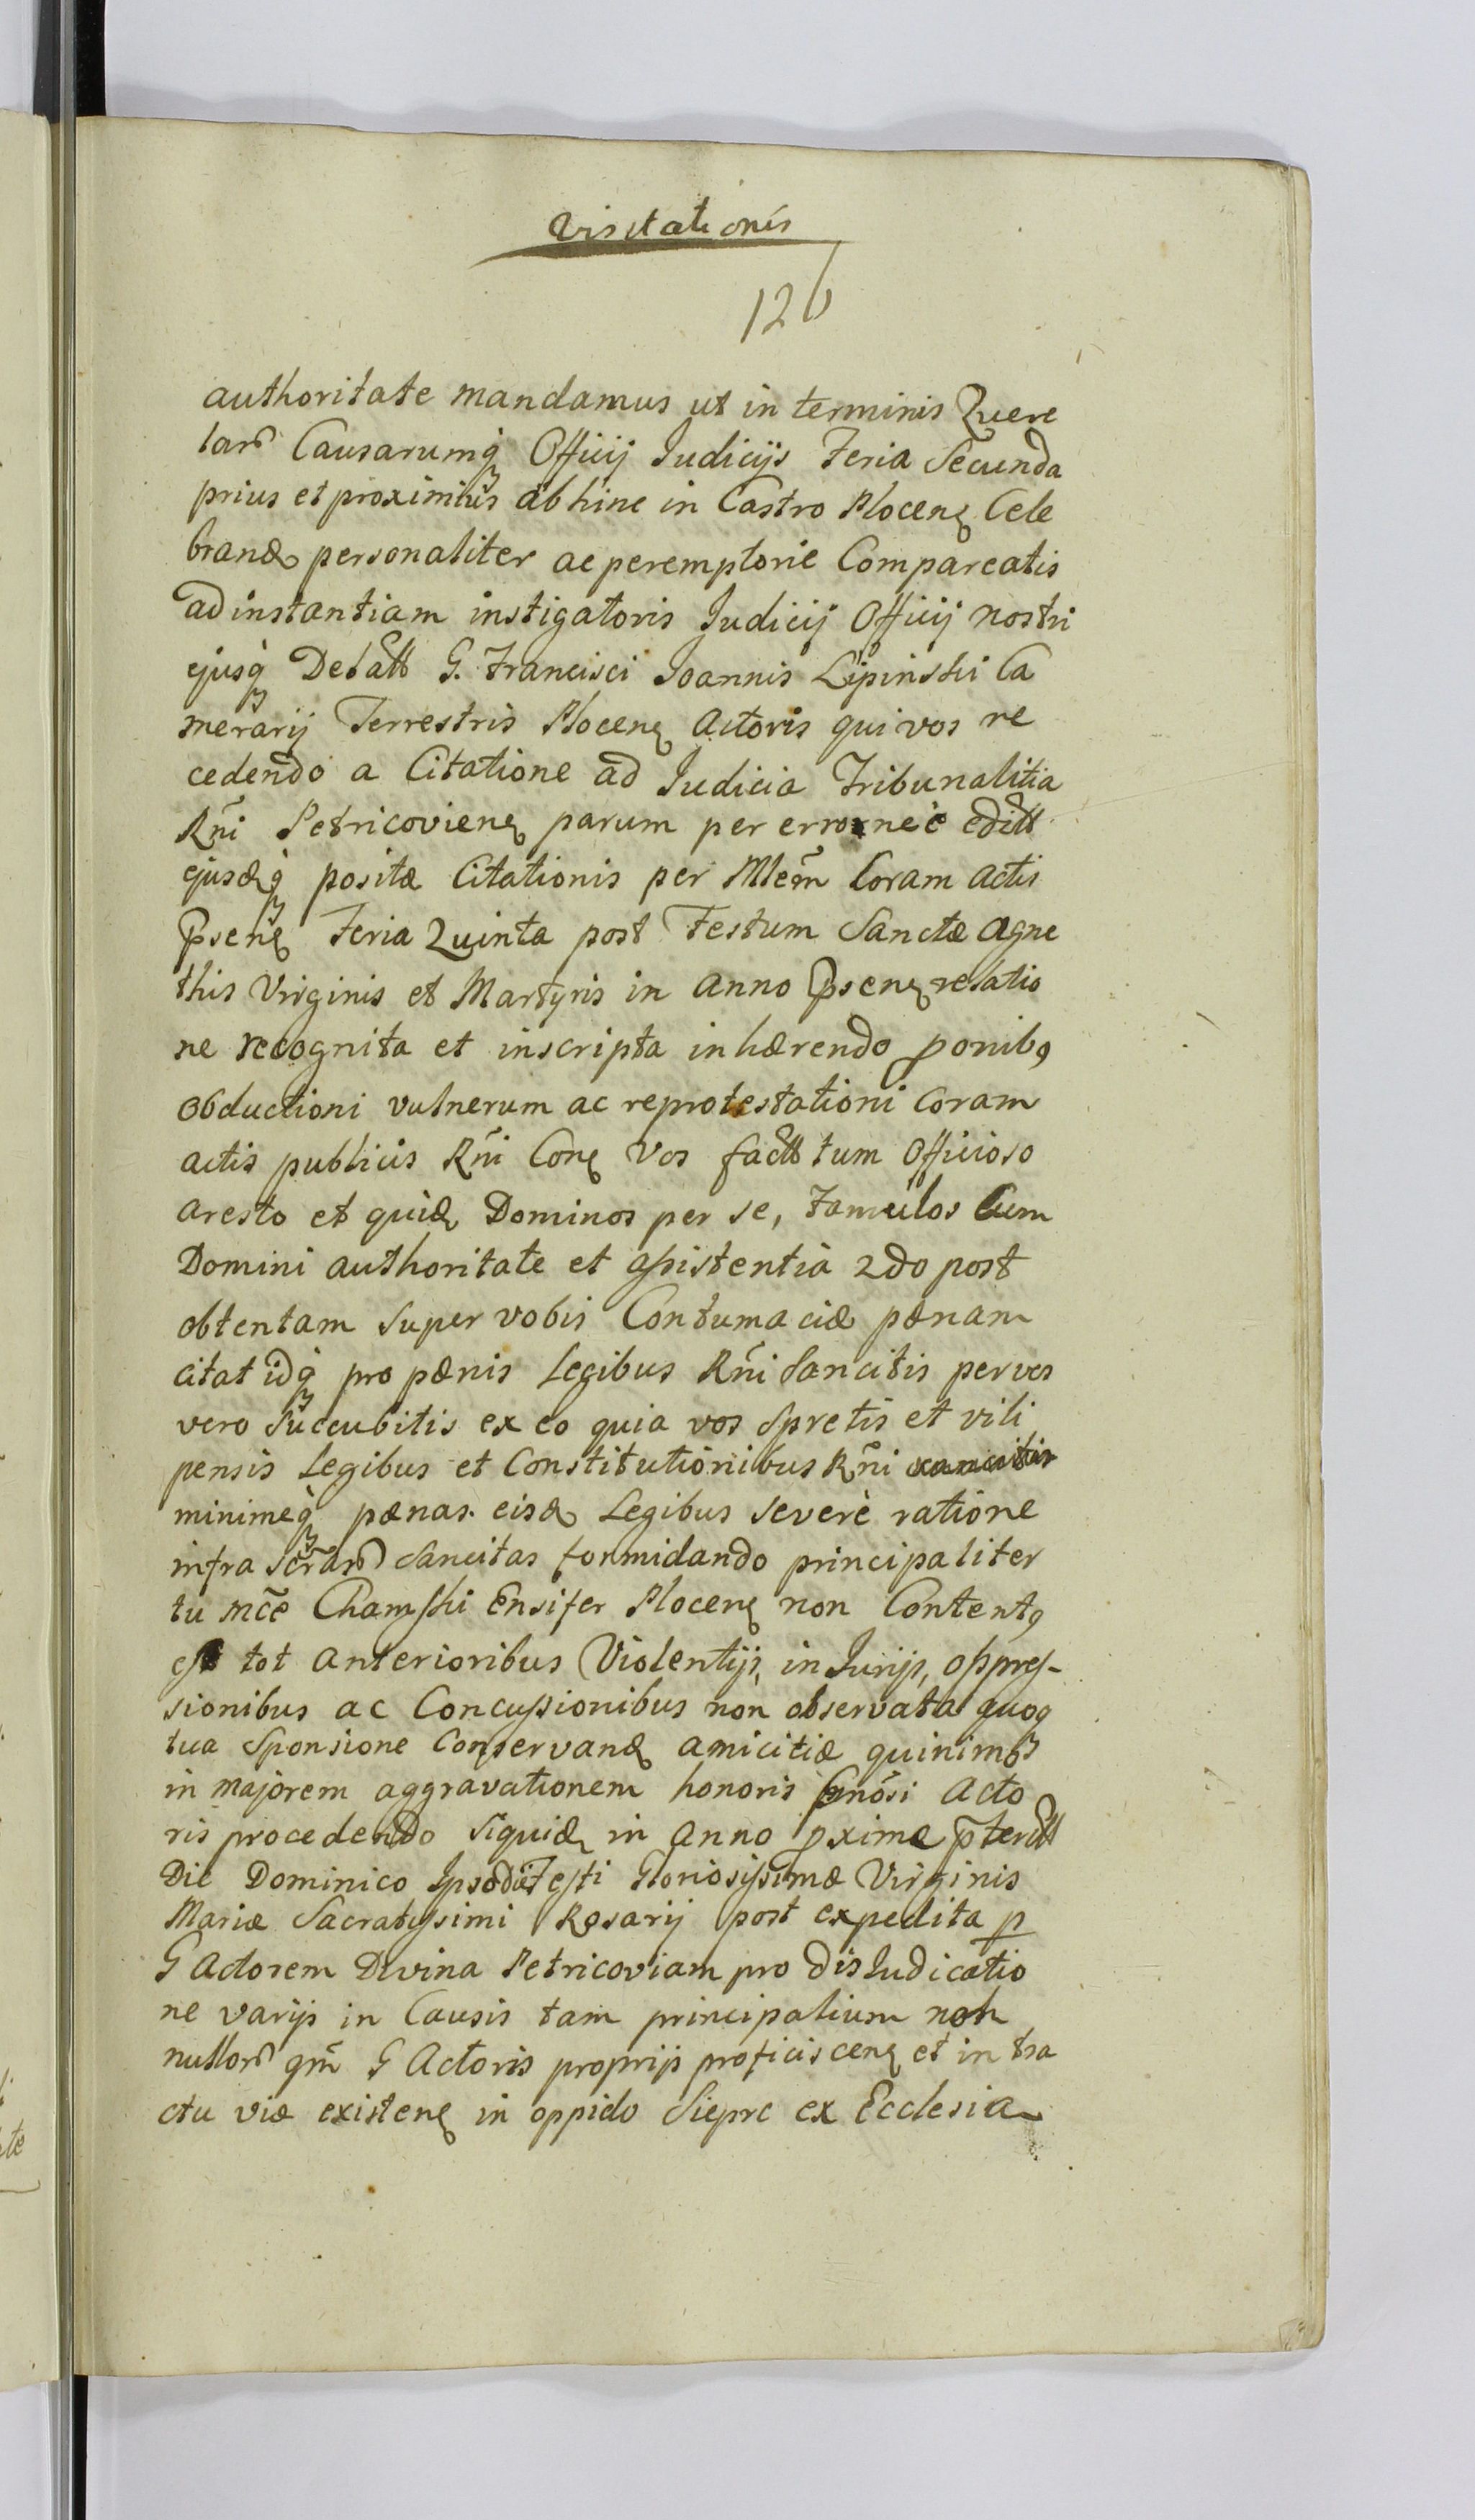 Visitationis
126
authoritate mandamus ut in terminis Quere
larū Causarumq Officij Judicijs Feria Secunda
prius et proximius abhinc in Castro Plocenę Cele
brandę personaliter ac peremptorie Compareatis
ad instantiam instigatoris Judicij Officij nostri
ejusq Delatt G. Francisci Joannis Lipinski Ca
merarij Terrestris Plocenę Actoris qui vos re
cedendo a Citatione ad Judicia Tribunalitia
Rñi Petricovienę parum per erronee editt
ejusdęq positæ Citationis per Mlem̃ Coram actis
p̄senę Feria Quinta post Festum Sanctæ Agne
this Virginis et Martyris in Anno p̄senę relatio
ne recognita et inscripta inhærendo ponib9
obductioni vulnerum ac reprotestationi Coram
actis publicis Rñi Conę Vos factt tum Officioso
aresto et quidę Dominos per se, Famulos Cum
Domini authoritate et assistentia 2do post
obtentam Super vobis Contumaciæ pænam
citat idq pro pænis Legibus Rñi Sancitis per vos
vero Succubitis ex eo quia vos Spretis et vili
pensis Legibus et Constitutionibus Rñi
minimeq pænas eisdę Legibus Severè ratione
infra Scrarū Sancitas formidando principaliter
tu mcē Chamski Ensifer Plocenę non Content9
tot anterioribus Violentijs, inJurijs, oppres-
sionibus ac Concussionibus non observata quoq
tua Sponsione Conservandę amicitiæ quinimo
in majorem aggravationem honoris Gnōsi Acto
ris procedendo Siquidę in Anno pximæ p̄teritt
Die Dominico Festi Gloriosissimæ Virginis
Mariæ Sacratissimi Rosarij post expedita p
G Actorem Divina Petricoviam pro disJudicatio
ne varijs in Causis tam principalium non
nullorū qm̃ G Actoris proprijs proficiscenę et in tra
ctu viæ existenę in oppido Sieprc ex Ecclesia